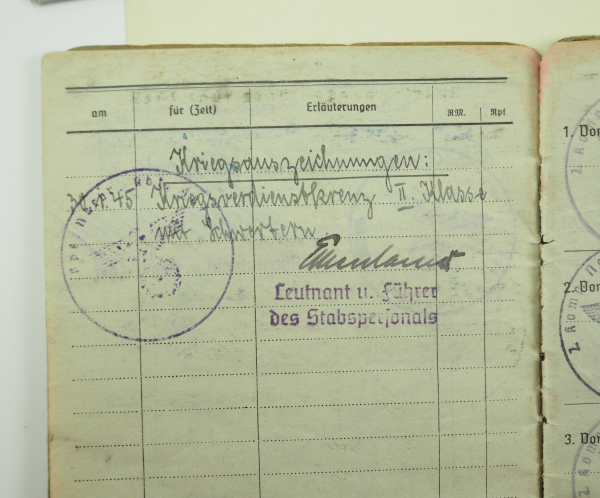 am für (Zeit) Erläuterungen RM. Rpf
Kriegsauszeichnungen:
45 Kriegsverdienstkreuz II. Klasse
mit Schwertern
Leutnant u. Führer
des Stabspersonals
1. Vor
2. Vor
3. Vor